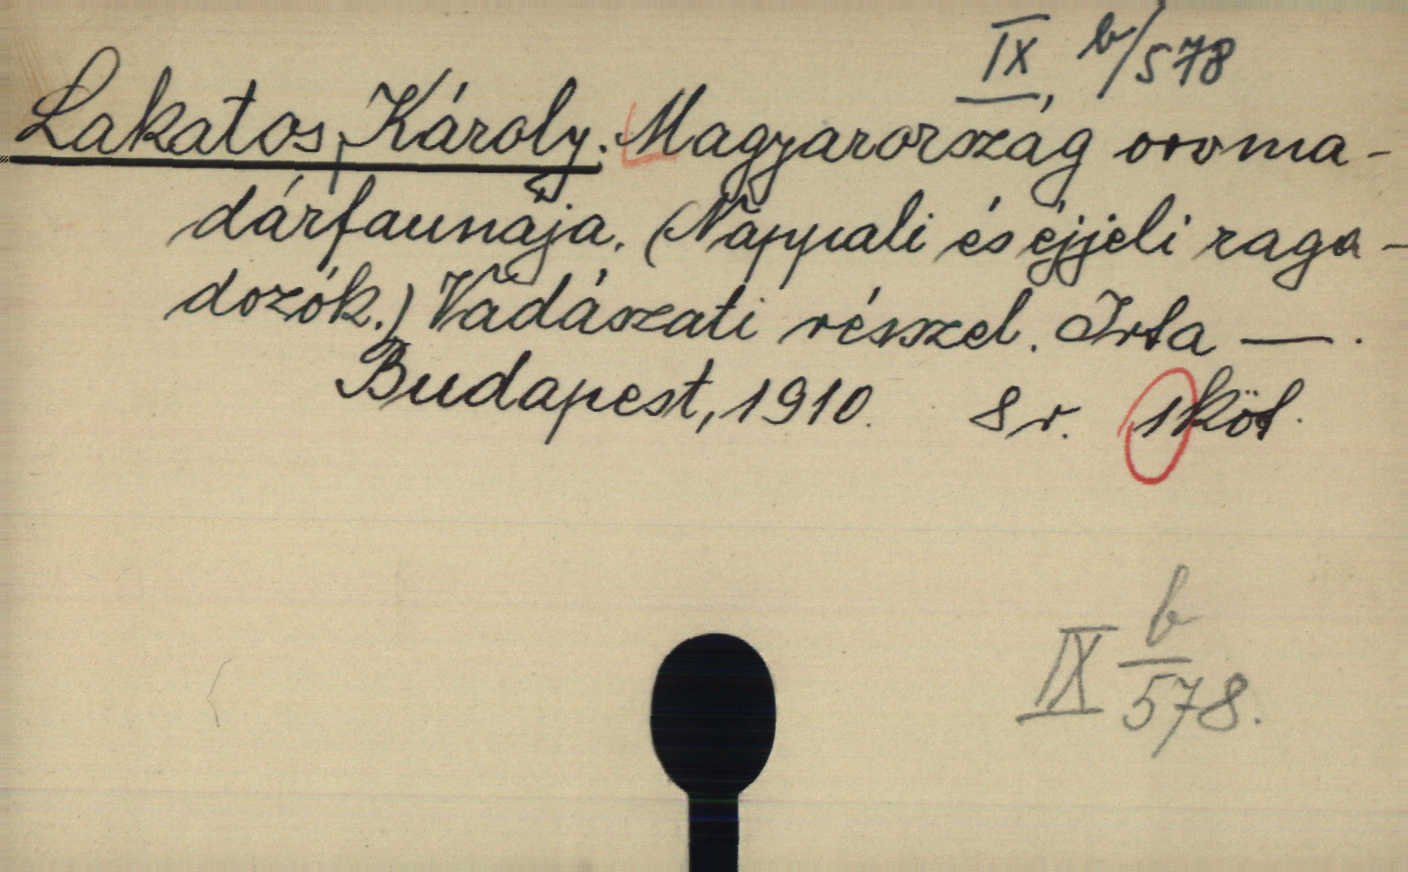 IX, b/578
Lakatos, Károly. Magyarország orvma-
dárfaunája. (Nappali és éjjeli raga-
dozók.) Vadászati résszel. Irta —.
Budapest, 1910. 8r. 1 köt.
IX b/578.